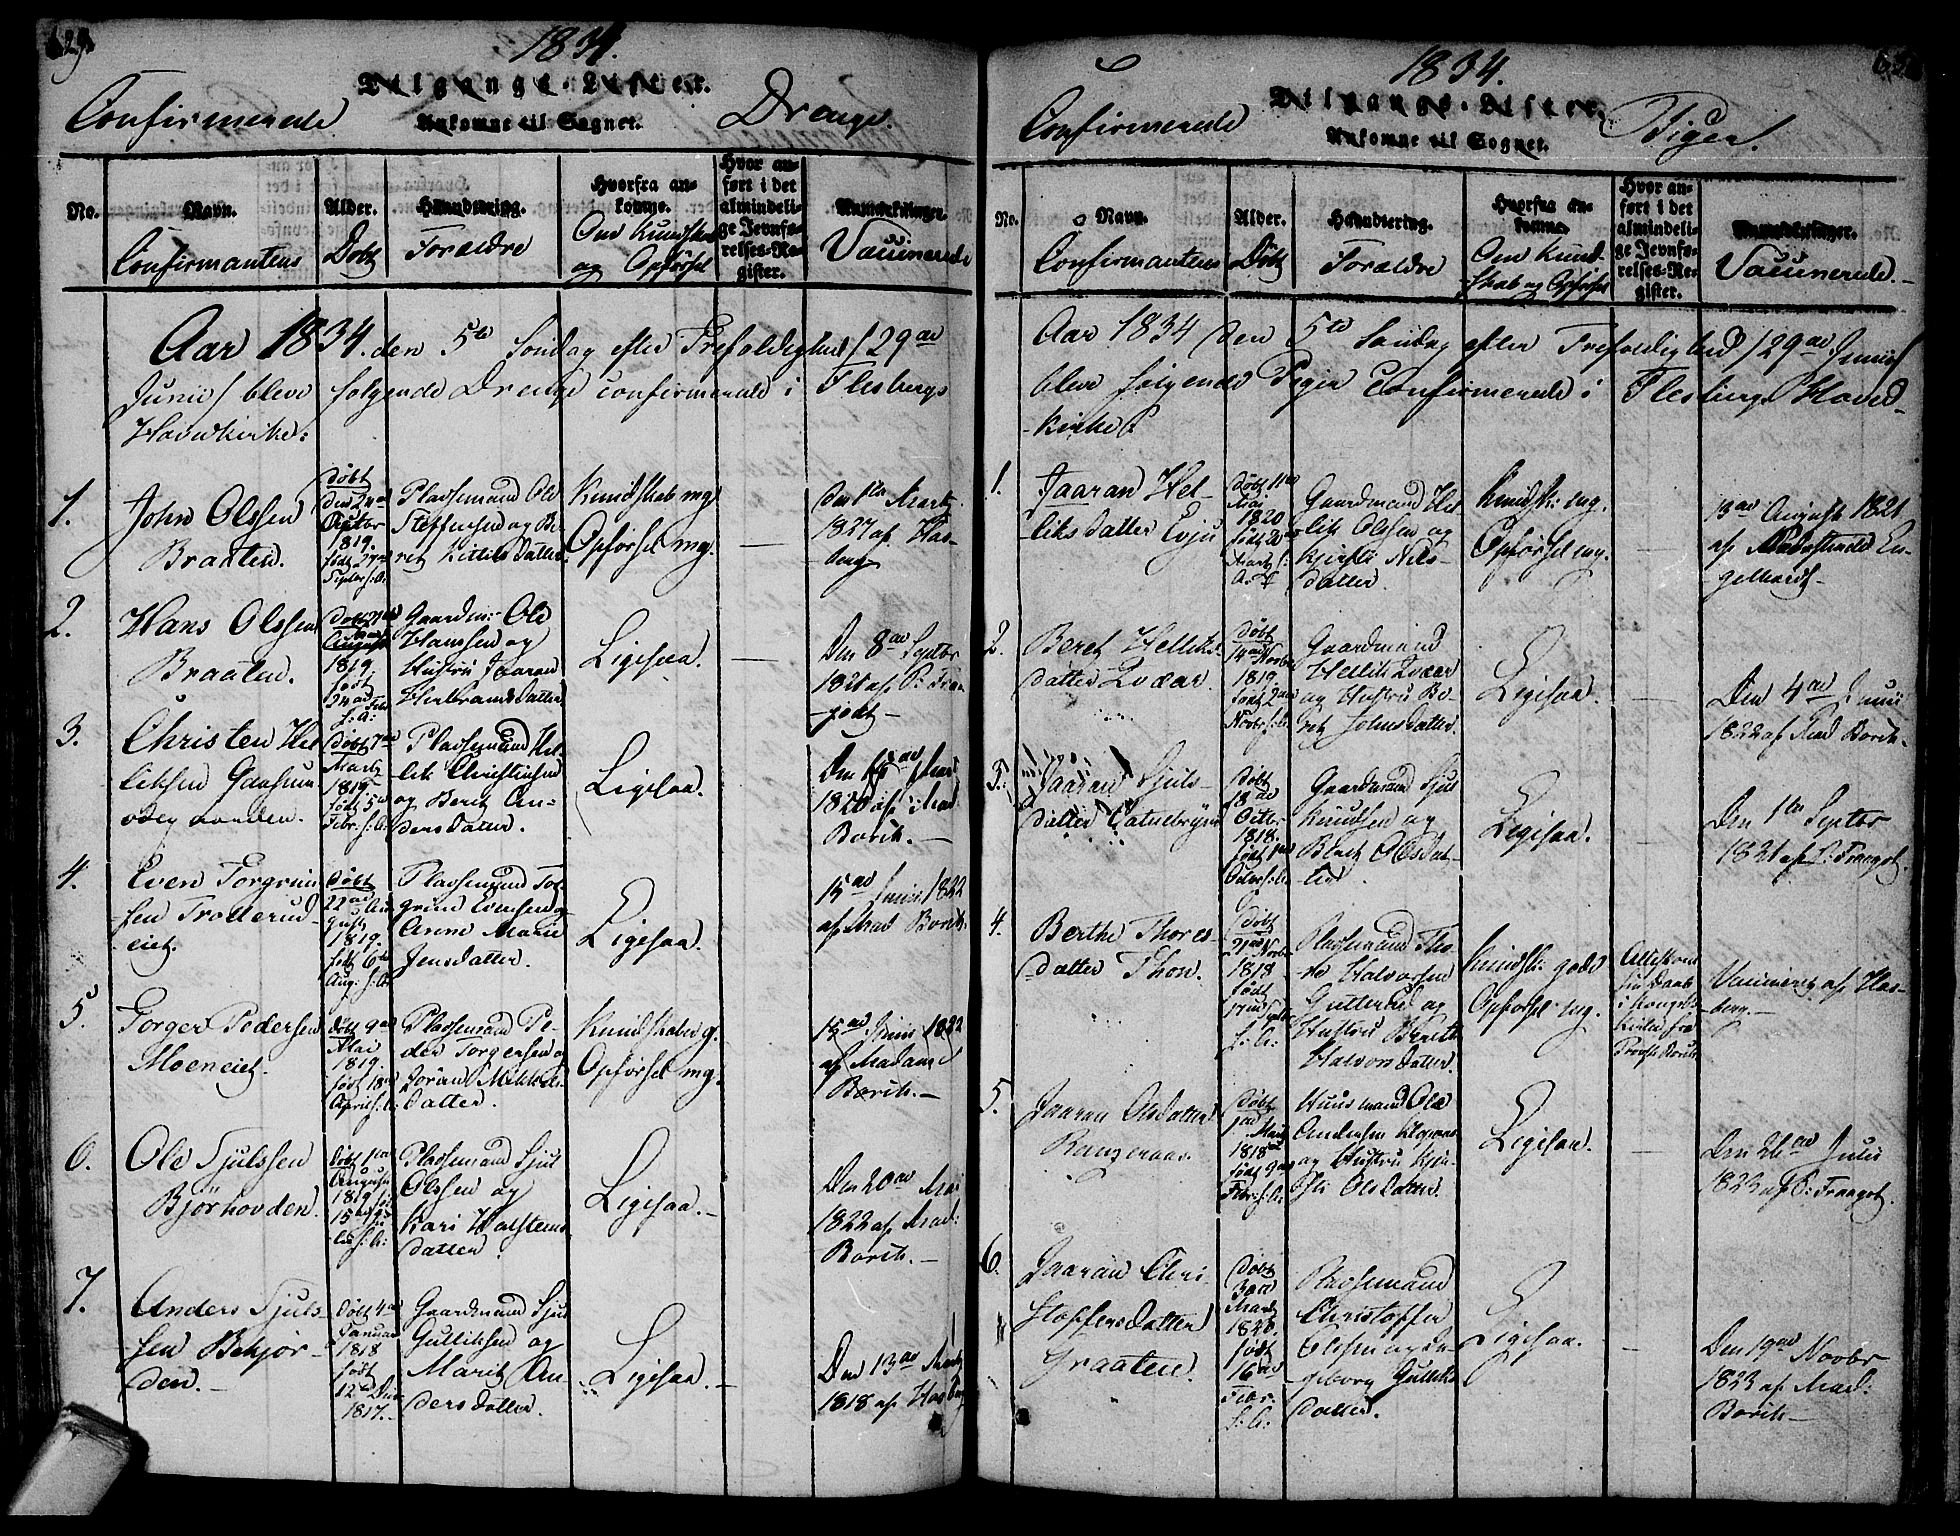 629.
1834.
Tilgangs-Lister.
Confirmerede Drenge.
Ankomne til Sognet.
No.
Navn.
Confirmantens
Alder.
Døbt
Haandtering.
Forældre
Hvorfra an-
komne.
Om Kundskab
og Opførsel
Hvor an-
ført i det
almindeli-
ge Jevnfø-
relses-Re-
gister.
Anmærkninger.
Vaccinerede
Aar 1834. den 5te Søndag efter Trefoldighed /29de
Junii/ bleve følgende Drenge confirmerede i Flesbergs
Hovedkirke:
1.
John Olssen
Braaten.
døbt
den 24de
Octbr
1819.
født 27de
Septbr s:A:
Pladsemand Ole
Steffensen og Be-
ret Kittilsdatter
Kundskab mg
Opførsel mg.
—
Den 1te Martz
1827 af Has-
berg
2.
Hans Olssen
Braaten.
1819.
født
24de
s:A:
Gaardm: Ole
Hanssen og
Hustru Jaaran
Halvansdatter
Ligesaa.
—
Den 8de Septbr
1821 af P: Fran-
godt —
3.
Christen Hel-
liksen Gaasum-
ødegaarden.
døbt 7de
Martz
1819.
født 5te
Febr. s:A:
Pladsemand Hel-
lik Christensen
og Berit An-
dersdatter.
Ligesaa.
1820 af Mad.
Borch. —
4.
Even Torgrim-
sen Trollerud-
eiet.
Døbt
22de Au-
gust
1819.
født 6te
Aug: s:A:
Pladsemand Tor-
grim Evensen og
Anne Marie
Jensdatter.
Ligesaa.
15de Junii 1822
af Mad Borch.
5.
Torger Pedersen
Moeneiet.
døbt 9de
Mai
1819.
født 18de
April s:A:
Pladsemand Pe-
der Torgersen og
Jøran Mikkels-
datter.
Kundskaber g.
Opførsel mg.
15de Junii 1822
af Madame
Borch. —
6.
Ole Sjulssen
Bjørhovden.
døbt 1te
August
1819 født
15de Ju-
lii s:A:
Pladsemand Sjul
Olssen og
Kari Halsteens-
datter.
Ligesaa. —
Den 20de Mai
1822 af Mad:
Borch. —
7.
Anders Sjuls-
sen Bekjor-
den. —
Døbt 4de
Januar
1818
født
12te Decbr
1817.
Gaardmand Sjul
Gulliksen og
Marit An-
dersdatter.
Ligesaa. —
Den 13de Martz
1818 af Hasberg
1834.
Tilgangs-Lister.
Confirmerede Piger.
Ankomne til Sognet.
No.
Navn.
Confirmantens
Alder.
Døbt
Haandtering.
Forældre
Hvorfra an-
komne.
Om Kund-
skab og Opførsel
Hvor an-
ført i det
almindeli-
ge Jevnfø-
relses-Re-
gister.
Anmærkninger.
Vaccinerede. —
Aar 1834 den 5te Søndag efter Trefoldighed /29de Junii/
bleve følgende Piger Confirmerede i Flesbergs Hoved-
kirke
1.
Jaaran Hel-
liksdatter Evju
døbt 11te
Mai
1820
født 20de
Martz s:
A:
Gaardmand Hel-
lik Olssen og
Kjersti Nils-
datter.
Kundsk: mg.
Opførsel mg.
—
13de August 1821
af En-
gelhardt —
2.
Beret Helliks-
datter Qvær.
døbt
14de Novbr
1819.
født 2de
Novbr s:A:
Gaardmand
Hellik Qvær
og Hustru Be-
ret Johnsdatter.
Ligesaa.
—
Den 4de Junii
1822 af Mad Borch.
3.
Jaaran Sjuls-
datter
døbt
18de
Octbr
1818.
født 1te
Octbr s:A:
Gaardmand Sjul
Knudsen og
Olsdat-
ter
Ligesaa.
—
Den 1te Septbr
1821 af P: Frangot.
4.
Berthe Thores-
datter Thon.
døbt
21de Novbr
1818
født
s:A:
Pladsemand Tho-
re Halvorsen
Gutterud og
Hustru Bereth
Halvorsdatter.
Kundsk: god
Opførsel mg.
Attesteret
sin Daab
i Kongsb:
Kirke fra
Provst
Vaccineret af Has-
berg. —
5.
Jaaran Olsdatter
døbt
1te Martz
1818
født 9de
Febr: s:A:
Huusmand Ole
Andersen
og Hustru Kjer-
sti Olsdatter.
Ligesaa.
—
Den 26de Julii
1823 af P: Frangot.
6.
Jaaran Chri-
stoffersdatter
Graaten.
døbt
3die
Martz
1820.
født
16de
Febr:
s:A:
Pladsemand
Christoffer
Olssen og In-
geborg Gulliks-
datter.
Ligesaa.
—
Den 19de Novbr
1823 af Mad:
Borch —